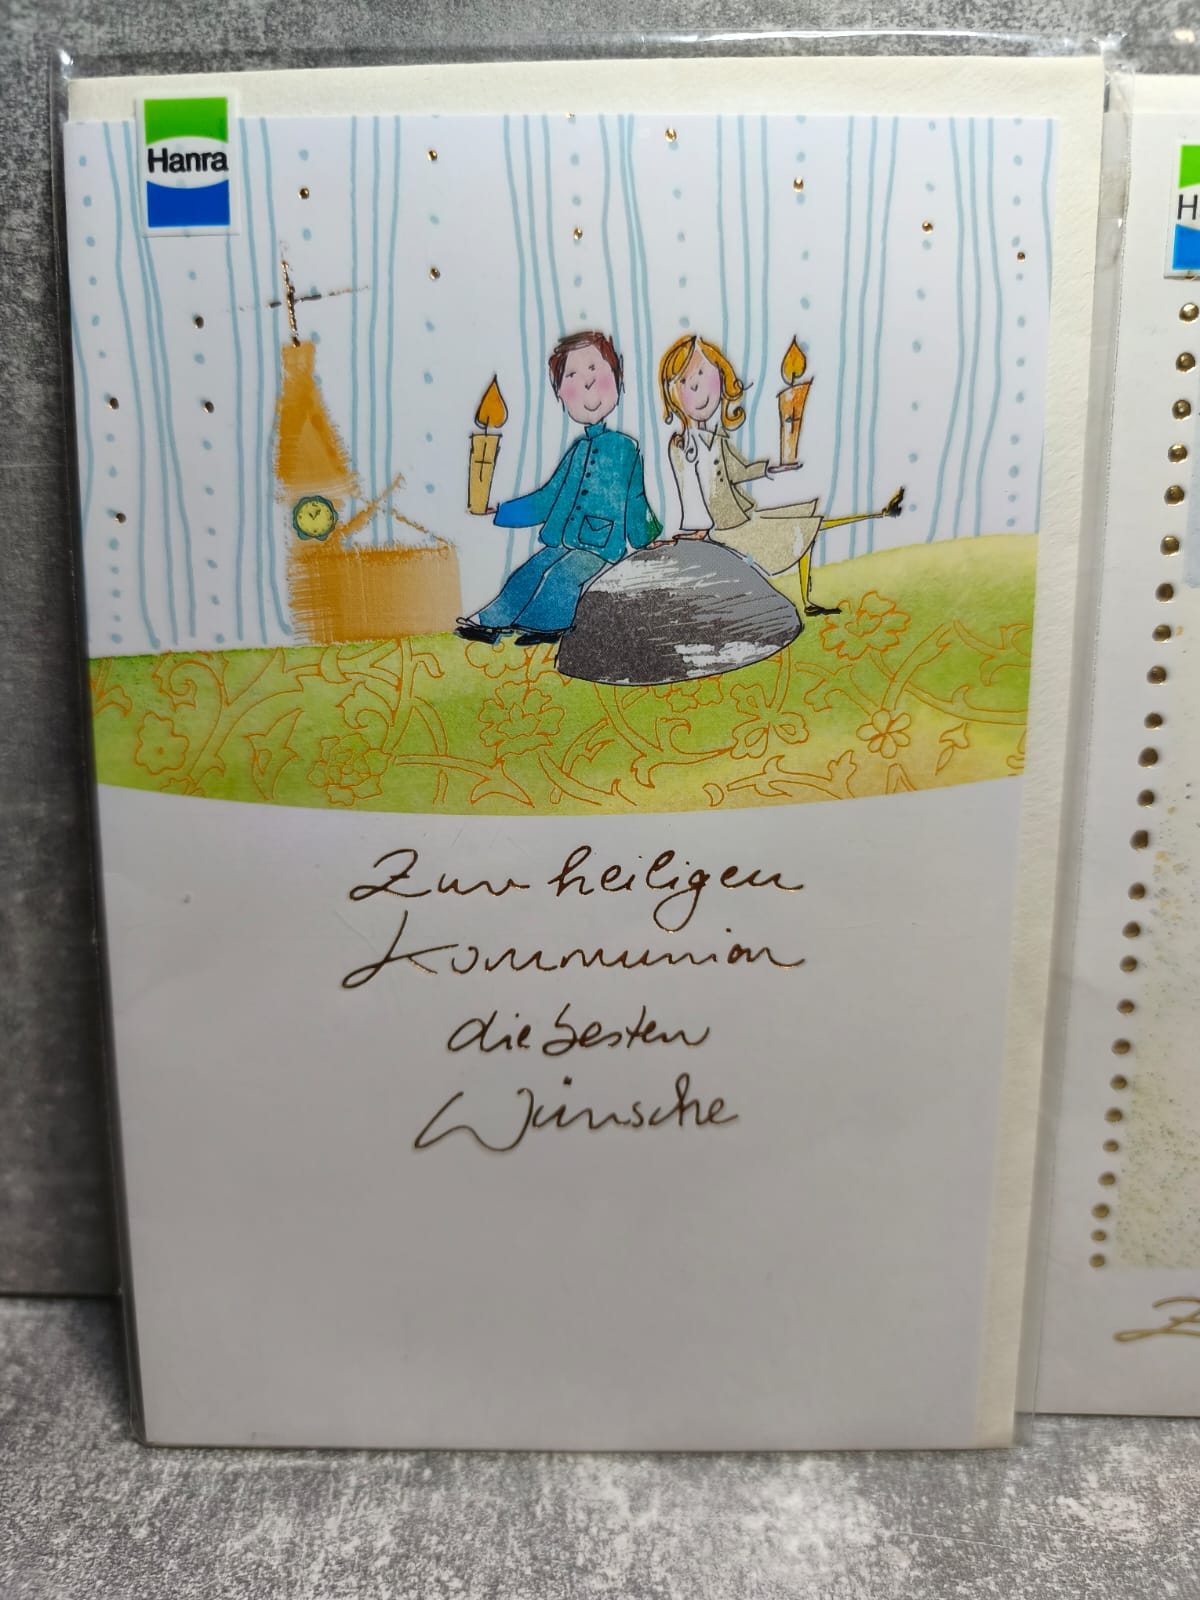 Hanra
Zur heiligen
Kommunion
die besten
Wünsche
H
Z